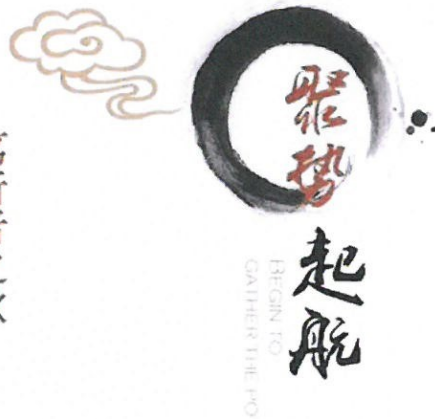 聚势
起航
BEGIN TO
GATHER THE PO